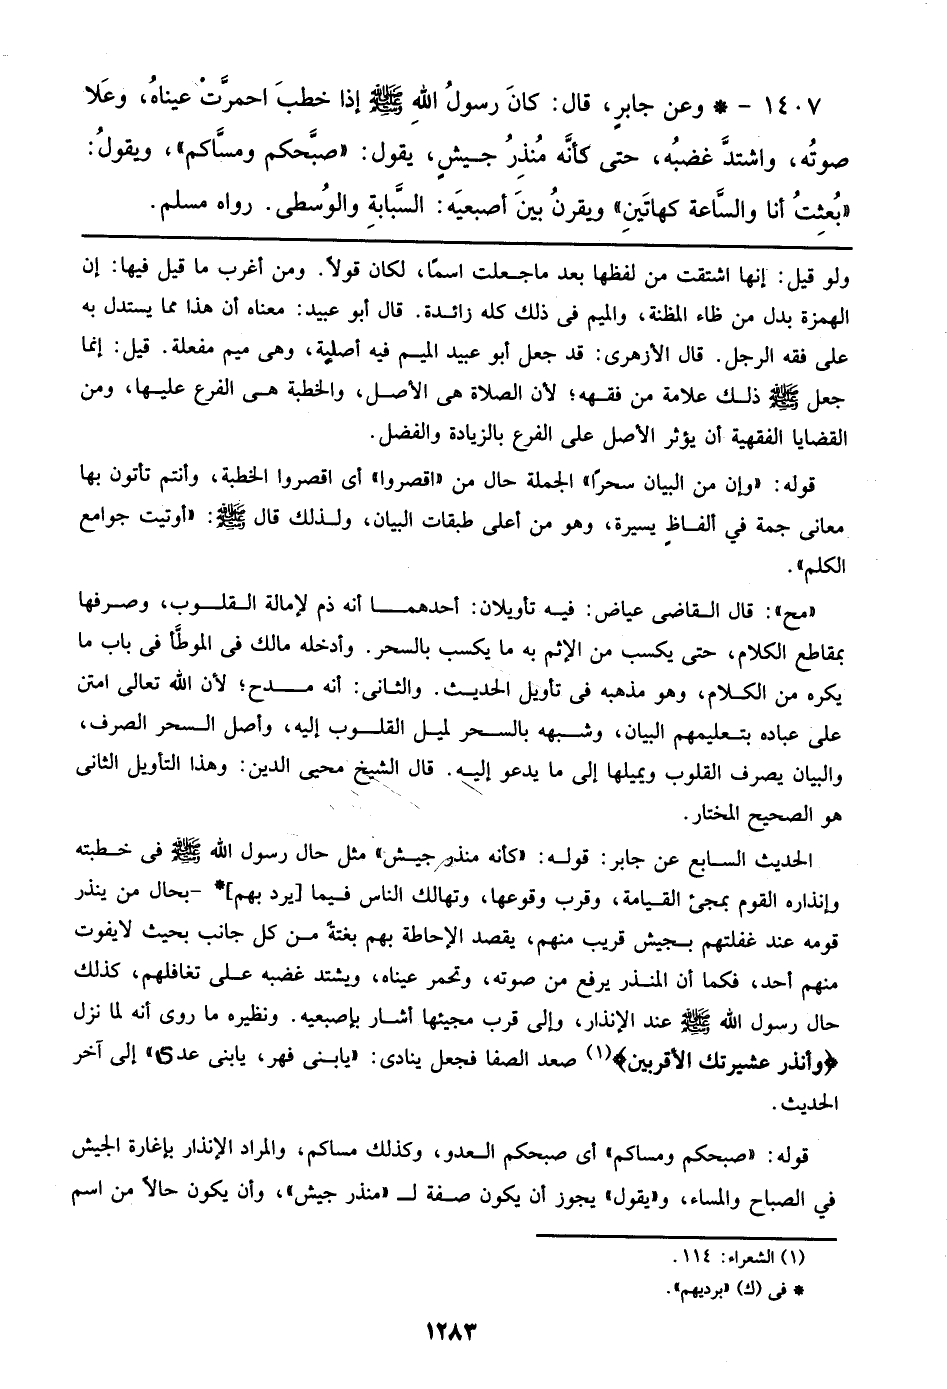 ١٤٠٧ – * وعن جابرٍ، قال: كانَ رسولُ اللهِ ﷺ إذا خطبَ احمرَّتْ عيناهُ، وعَلا
صوتُه، واشتدَّ غضبُه، حتى كأنَّه مُنذِرُ جيشٍ، يقول: «صبَّحكم ومسَّاكم»، ويقولُ:
«بُعِثتُ أنا والسَّاعة كهاتَينِ» ويقرنُ بينَ أصبعيَه: السَّبابةِ والوُسطى. رواه مسلم.
ولو قيل: إنها اشتقت من لفظها بعد ماجعلت اسمًا، لكان قولاً. ومن أغرب ما قيل فيها: إن
الهمزة بدل من ظاء المظنة، والميم فى ذلك كله زائدة. قال أبو عبيد: معناه أن هذا مما يستدل به
على فقه الرجل. قال الأزهرى: قد جعل أبو عبيد الميم فيه أصلية، وهى ميم مفعلة. قيل: إنما
جعل ﷺ ذلك علامة من فقهه؛ لأن الصلاة هى الأصل، والخطبة هى الفرع عليها، ومن
القضايا الفقهية أن يؤثر الأصل على الفرع بالزيادة والفضل.
قوله: «وإن من البيان سحرًا» الجملة حال من «اقصروا» أى اقصروا الخطبة، وأنتم تأتون بها
معانى جمة في ألفاظٍ يسيرة، وهو من أعلى طبقات البيان، ولذلك قال ﷺ: «أوتيت جوامع
الكلم».
«مح»: قال القاضى عياض: فيه تأويلان: أحدهما أنه ذم لإمالة القلوب، وصرفها
بمقاطع الكلام، حتى يكسب من الإثم به ما يكسب بالسحر. وأدخله مالك فى الموطَّأ فى باب ما
يكره من الكلام، وهو مذهبه فى تأويل الحديث. والثانى: أنه مدح؛ لأن الله تعالى امتن
على عباده بتعليمهم البيان، وشبهه بالسحر لميل القلوب إليه، وأصل السحر الصرف،
والبيان يصرف القلوب ويميلها إلى ما يدعو إليه. قال الشيخ محيى الدين: وهذا التأويل الثانى
هو الصحيح المختار.
الحديث السابع عن جابر: قوله: «كأنه منذر جيش» مثل حال رسول الله ﷺ فى خطبته
وإنذاره القوم بمجئ القيامة، وقرب وقوعها، وتهالك الناس فيما [يرد بهم]* -بحال من ينذر
قومه عند غفلتهم بجيش قريب منهم، يقصد الإحاطة بهم بغتةً من كل جانب بحيث لايفوت
منهم أحد، فكما أن المنذر يرفع من صوته، وتحمر عيناه، ويشتد غضبه على تغافلهم، كذلك
حال رسول الله ﷺ عند الإنذار، وإلى قرب مجيئها أشار بإصبعيه. ونظيره ما روى أنه لما نزل
﴿وأنذر عشيرتك الأقربين﴾(١) صعد الصفا فجعل ينادى: «يابنى فهر، يابنى عدى» إلى آخر
الحديث.
قوله: «صبحكم ومساكم» أى صبحكم العدو، وكذلك مساكم، والمراد الإنذار بإغارة الجيش
في الصباح والمساء، و«يقول» يجوز أن يكون صفة لـ «منذر جيش»، وأن يكون حالاً من اسم
(١) الشعراء: ١١٤.
* فى (ك) «برديهم».
١٢٨٣